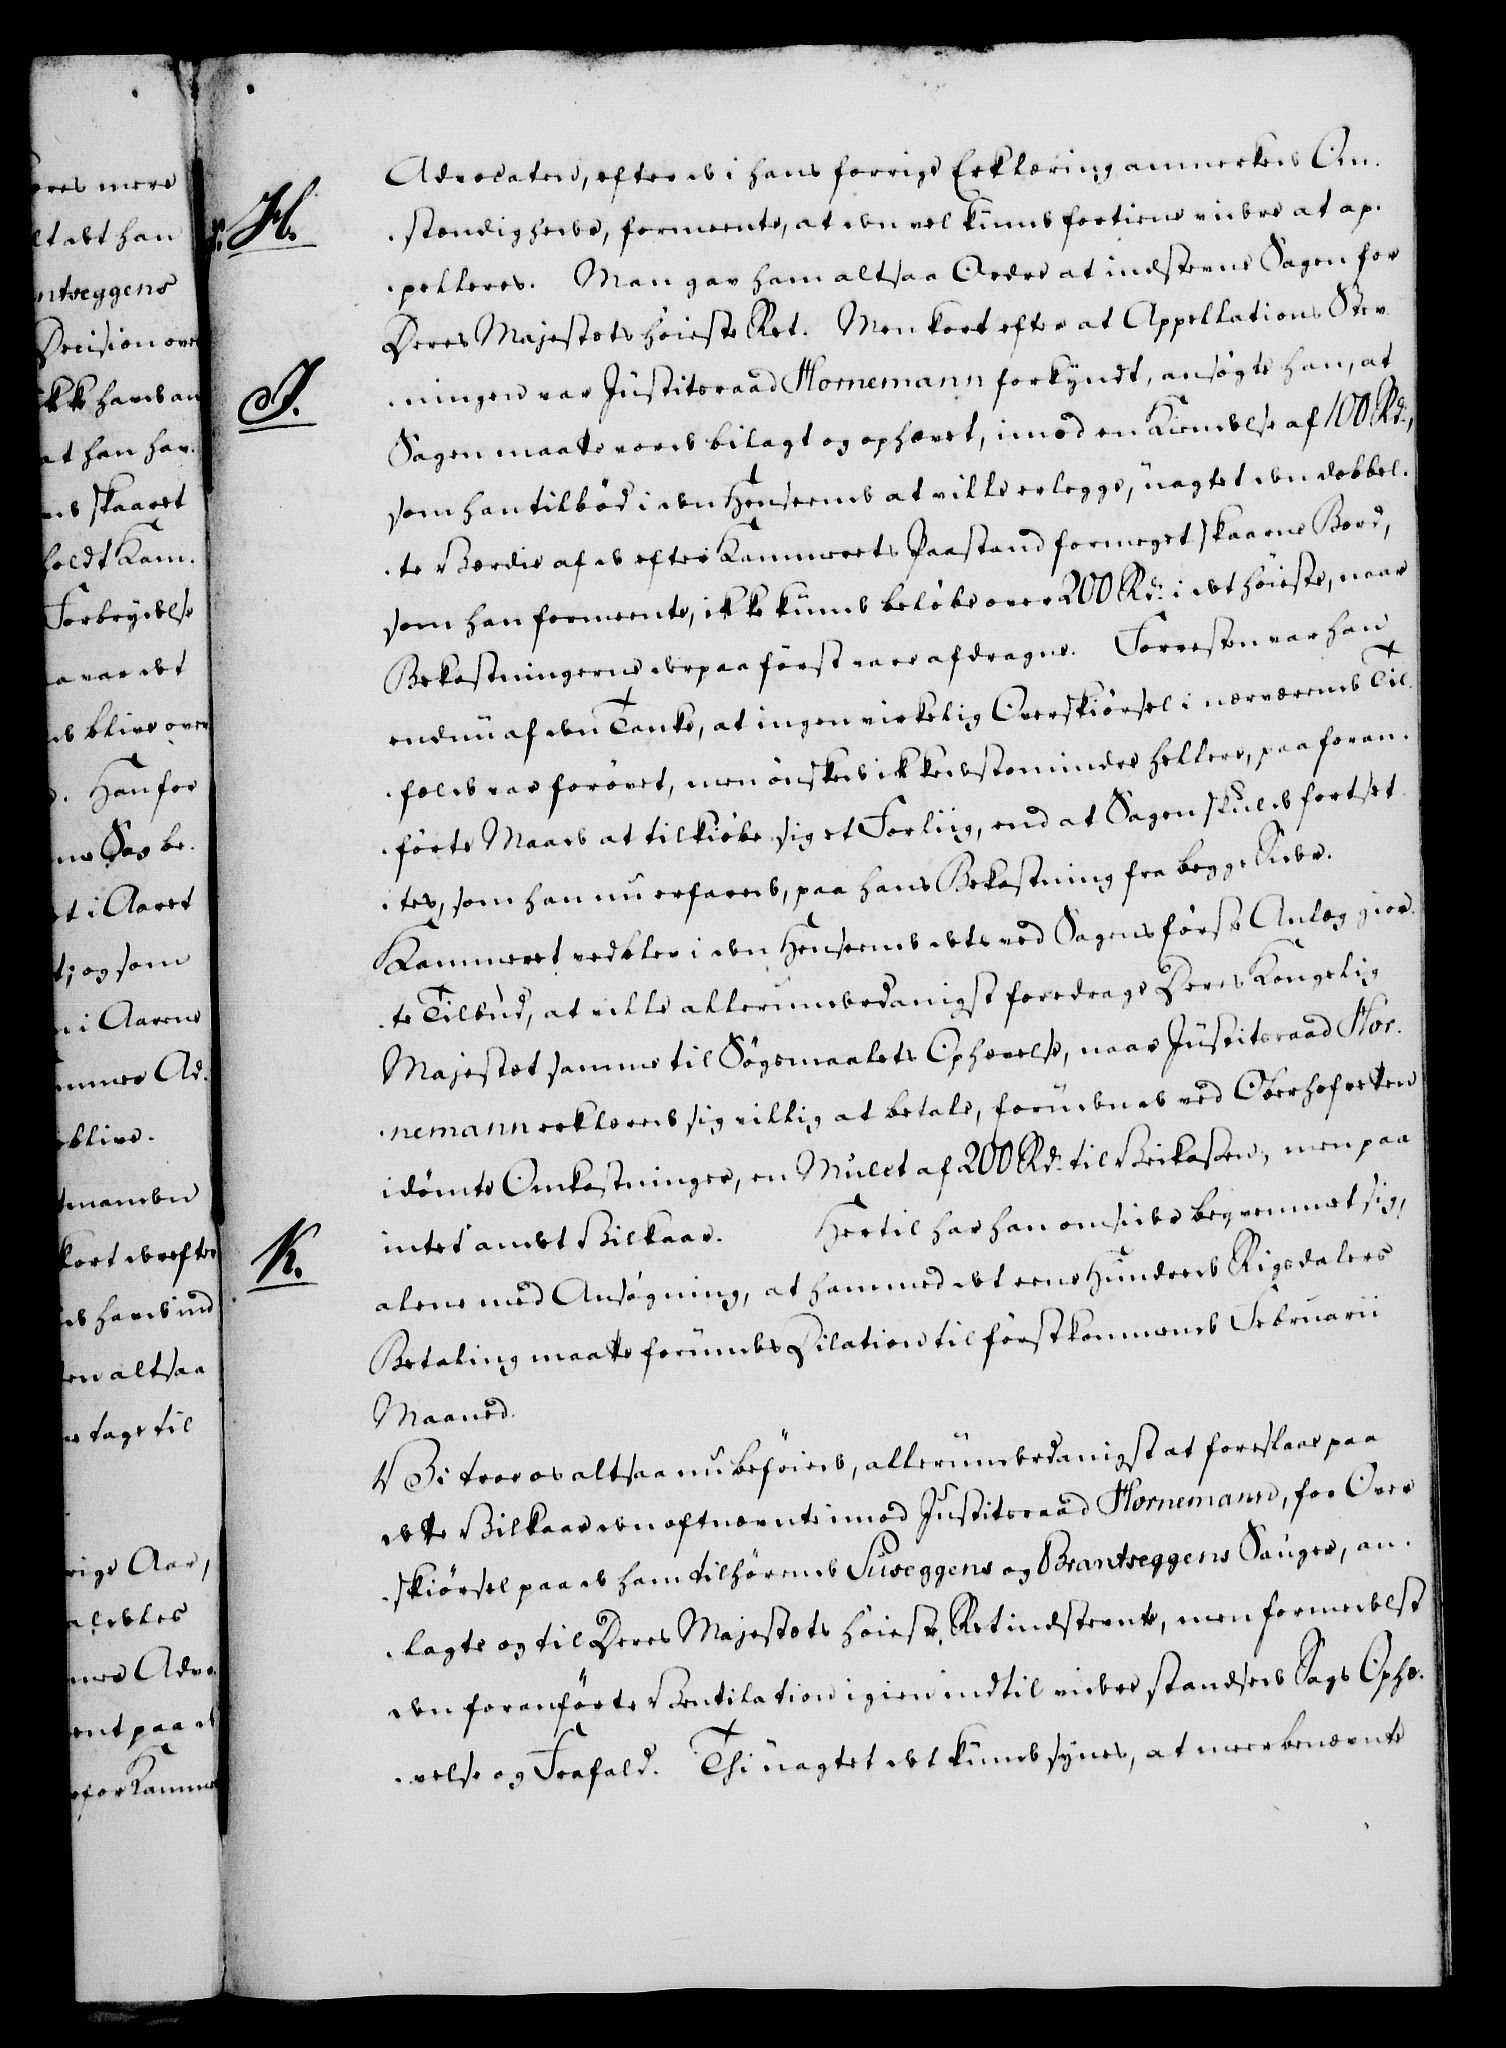 H.
Advocaten, efter de i hans forrige Erklæring anmerkede Om-
stændigheder, formeente, at den vel kunde fortiene videre at ap-
pelleres. Man gav ham altsaa Ordre at indstevne Sagen for
Deres Majestæts Høieste Ret. Men kort efter at Appellations Stev-
J.
ningen var Justitsraad Hornemann forkyndt, ansøgte han, at
Sagen maatte vorde bilagt og ophævet, imod en Kiendelse af 100 Rd.,
som han tilbød i den Henseende at ville erlegge, uagtet den dobbel-
te Værdie af de efter Kammerets Paastand formeget skaarne Bord,
som han formeente, ikke kunde beløbe over 200 Rd. i det høieste, naar
Bekostningerne derpaa først vare afdragne. Forresten var han
endnu af den Tanke, at ingen virkelig Overskiørsel i nærværende Til-
fælde var forøvet, men ønskede ikke destomindre hellere, paa foran-
førte Maade at tilkiøbe sig et Forliig, end at Sagen skulde fortset-
tes, som han nu erfarede, paa hans Bekostning fra begge Sider.
Kammeret vedblev i den Henseende dets ved Sagens første Anlæg gior-
te Tilbud, at ville allerunderdanigst foredrage Deres Kongelig
Majestæt samme til Søgsmaalets Ophævelse, naar Justitsraad Hor-
nemann erklærede sig villig at betale, foruden de ved Oberhofretten
idømte Omkostninger, en Mulct af 200 Rd. til Veikassen, men paa
intet andet Vilkaar. Hertil har han omsider beqvemmet sig,
K.
alene med Ansøgning, at ham med det eene Hundrede Rigsdalers
Betaling maatte forundes Dilation til førstkommende Februarii
Maaned.
Vi troe os altsaa nu beføiede, allerunderdanigst at foreslaae paa
dette Vilkaar den oftnævnte imod Justitsraad Hornemann, for Over-
skiørsel paa de ham tilhørende Suseggens og Brantseggens Sauger, an-
lagte og til Deres Majestæts høieste Ret indstevnte, men formedelst
den foranførte Ventilation igien indtil videre standsede Sags Ophæ-
velse og Frafald. Thi uagtet det kunde synes, at meerbenævnte